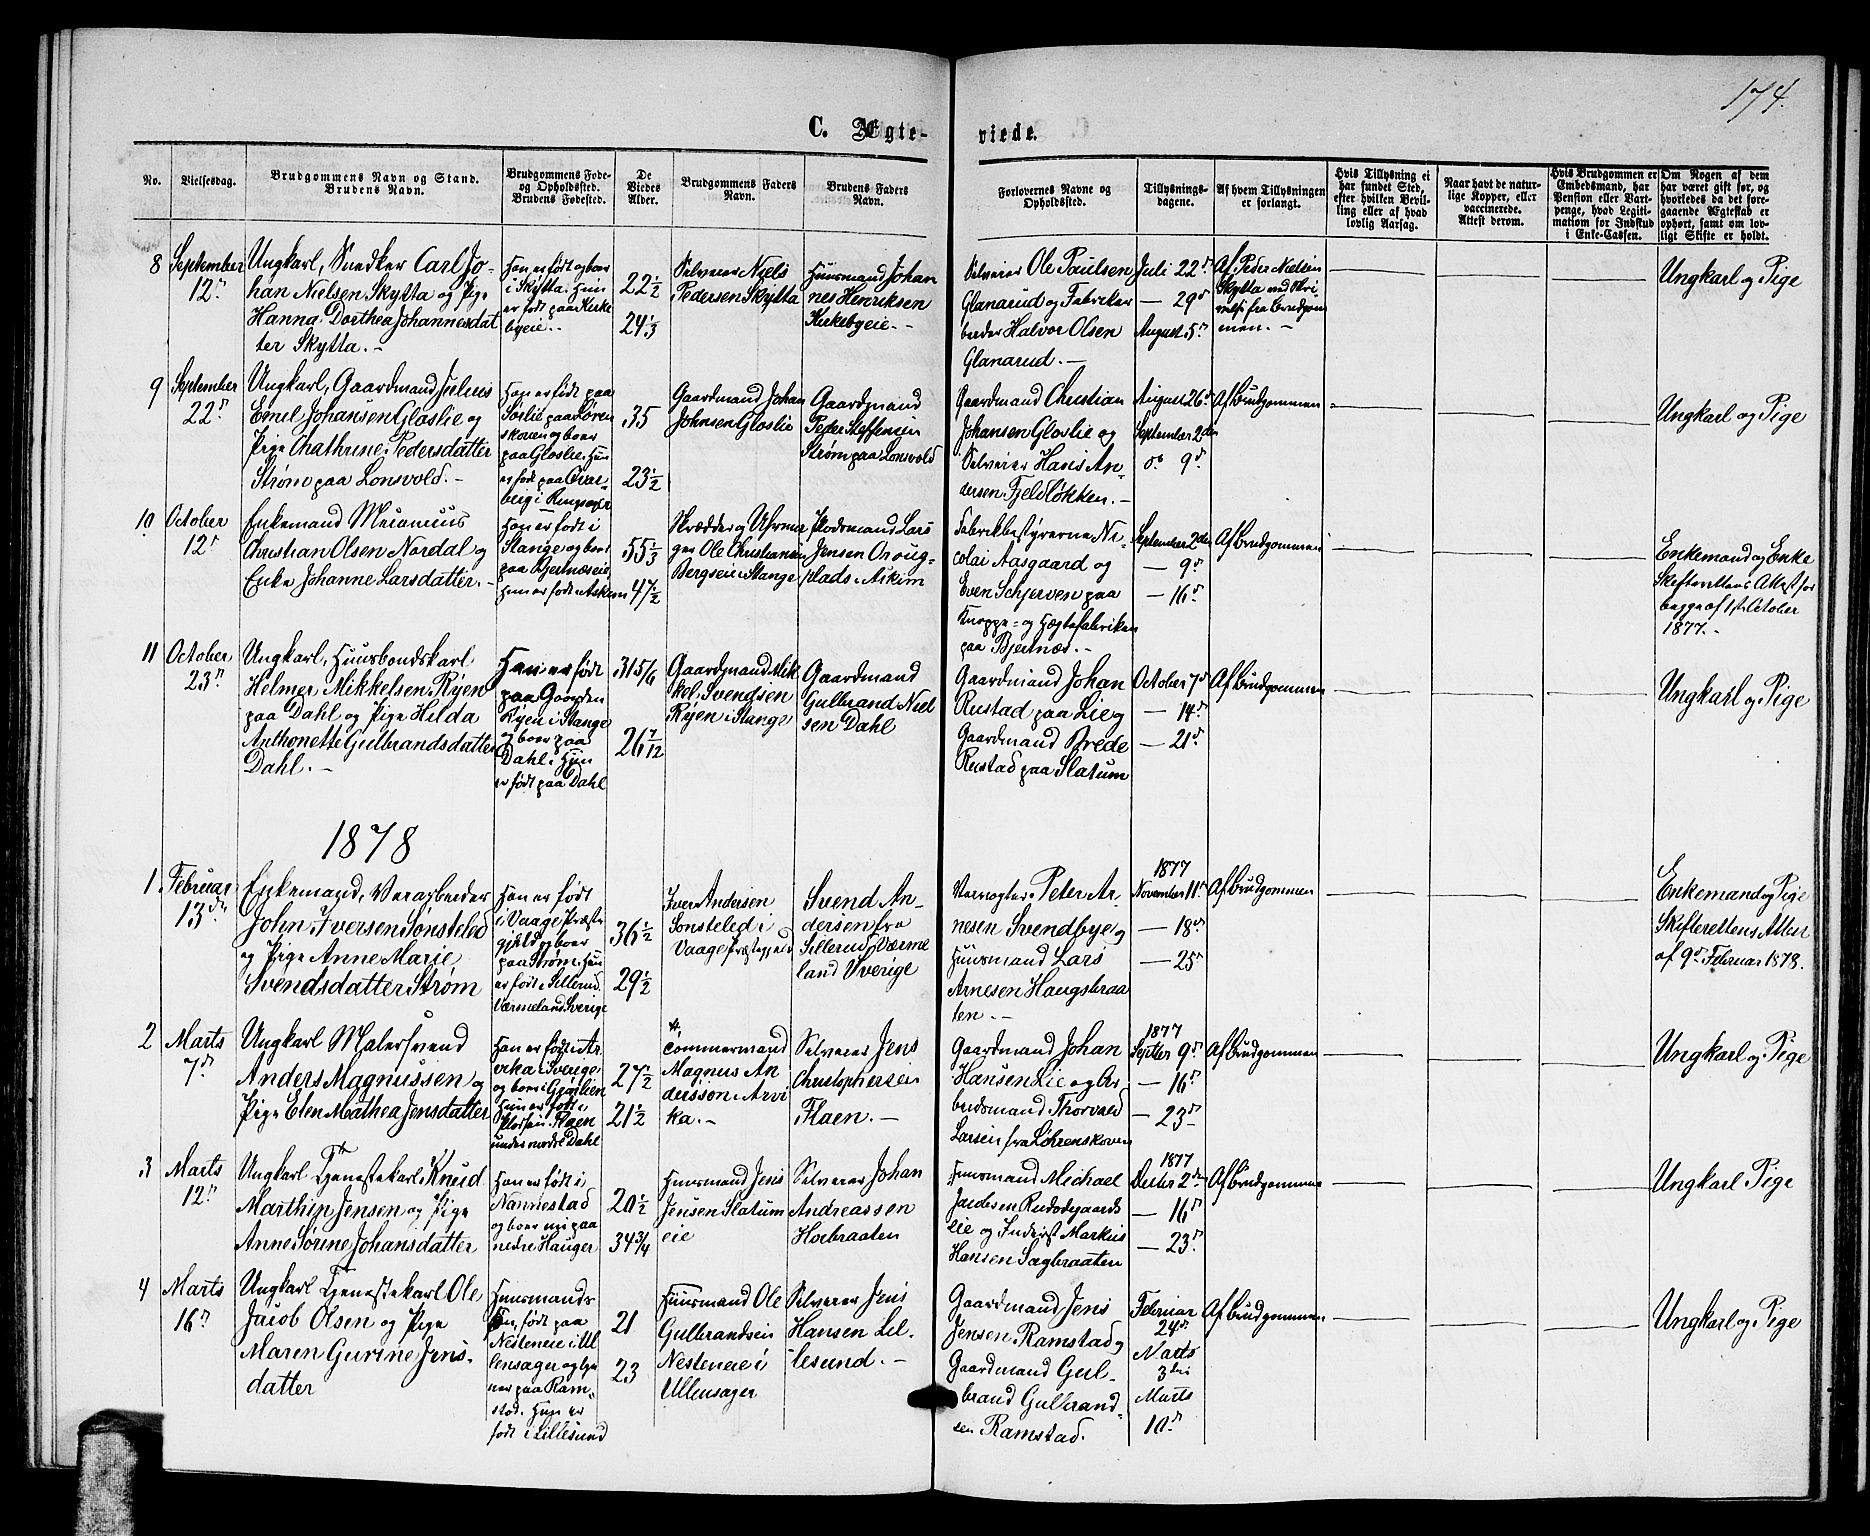 174.
C. Ægte-
viede.
No.
Vielsesdag.
Brudgommens Navn og Stand.
Brudens Navn.
Brudgommens Føde-
og Opholdssted.
Brudens Fødested.
De
Viedes
Alder.
Brudgommens Faders
Navn.
Brudens Faders
Navn.
Forlovernes Navne og
Opholdssted.
Tillysnings-
dagene.
Af hvem Tillysningen
er forlangt.
Hvis Tillysning ei
har fundet Sted,
efter hvilken Bevil-
ling eller af hvad
lovlig Aarsag.
Naar havt de natur-
lige Kopper, eller
vaccinerede.
Attest derom.
Hvis Brudgommen er
Embedsmand, har
Pension eller Vart-
penge, hvad Legiti-
mation for Indskud
i Enke-Cassen.
Om Nogen af dem
har været gift før, og
hvorledes da det fore-
gaaende Ægteskab er
ophørt, samt om lov-
ligt Skifte er holdt.
8
September
12te
Ungkarl, Snedker Carl Jo-
han Nielsen Skytta og Pige
Hanna Dorthea Johannesdat
ter Skytta. -
Han er født og boer
i Skytta. Hun
er født paa Kirke
byeie. -
22 1/2
24 1/3
Selveier Niels
Pedersen Skytta
Huusmand Johan
nes Henriksen
Kirkebyeie. -
Selveier Ole Paulsen
Glanarud og Fabrikar
beider Halvor Olsen
Glanarud. -
Juli 22de
- 29de
August 5te
Af Peder Nielsen
Skytta ved Skri
velse fra Brudgom
men. -
Ungkarl og Pige
9
September
22de
Ungkarl, Gaardmand Julius
Emil Johansen Gloslie og
Pige Chathrine Pedersdatter
Strøm paa Lonsvold. -
Han er født paa
Soslie paa Løren
skoven og boer
paa Gloslie. Hun
er født paa Over
berg i Ringsager
35
23 1/2
Gaardmand Johan
Johnsen Gloslie
Gaardmand
Peder Steffensen
Strøm paa Lonsvold
Gaardmand Christian
Johansen Gloslie og
Selveier Hans An-
dersen Fjeldløkken. -
August 26de
September 2den
do 9de
Af Brudgommen
Ungkarl og Pige
10
October
12te
Enkemand
Christian Olsen Nordal og
Enke Johanne Larsdatter. -
Han er født i
Stange og boer
paa Bjertnæseie,
Hun er født i Askim
55 1/3
47 1/2
Skrædder og
Ole Christiansen
Bergseie i Stange
Pladsmand Lars
Jensen
plads i Askim
Fabrikbestyrerne Ni-
colai Aasgaard og
Even Schjerven paa
Knappe- og Hægtefabriken
paa Bjertnæs. -
September 2den
- 9de
- 16de
Af Brudgommen
Enkemand og Enke
Skifterettens Attest for
begge af 1ste October
1877. -
11
October
23de
Ungkarl, Huusbondskarl
Helmer Mikkelsen Ryen
paa Dahl og Pige Hilda
Anthonette Gulbrandsdatter
Dahl. -
Han er født
paa Gaarden
Ryen i Stange
og boer paa
Dahl. Hun
er født paa Dahl
31 5/6
26 7/12
Gaardmand Mik
kel Svendsen
Ryen i Stange
Gaardmand
Gulbrand Niel
sen Dahl
Gaardmand Johan
Rustad paa Lie og
Gaardmand Brede
Rustad paa Slatum
October 7de
- 14de
- 21de
Af Brudgommen
Ungkarl og Pige
1878
1
Februar
13de
Enkemand, Veiarbeider
John Iversen Sønsteled
og Pige Anne Marie
Svendsdatter Strøm
Han er født
i Vaage Præste
gjeld og boer
paa Strøm. Hun
er født i Sillerud
Værmeland Sverige
36 1/2
29 1/2
Iver Andersen
Sønsteled i
Vaage Præstegjeld
Svend An-
dersen fra
Sillerud Værme
land Sverige
Peter Ar-
nesen Svendbye og
Huusmand Lars
Arnesen Haugsbraa
ten. -
1877
November 11te
- 18de
- 25de
Af Brudgommen
Enkemand og Pige
Skifterettens Attest
af 9de Februar 1878.
2
Marts
7de
Ungkarl Malersvend
Anders Magnussen og
Pige Elen Mathea Jensdatter
Han er født i Ar
vika i Sverige
og boer i Gjørlien
Hun er født i
Pladsen Flaen
under nordre Dahl
27 1/2
21 1/2
Tømmermand
Magnus An
dersson i Arvi
ka. -
Selveier Jens
Christophersen
Flaen. -
Gaardmand Johan
Hansen Lie og Ar
beidsmand Thorvald
Larsen fra Løhrenskoven
1877
Septbr 9de
- 16de
- 23de
Af Brudgommen
Ungkarl og Pige
3
Marts
12te
Ungkarl Tjenestekarl Knud
Marthin Jensen og Pige
Anne Sørine Johansdatter
Han er født i
Nannestad
og boer nu paa
nedre Hauger
20 1/2
34 3/4
Huusmand Jens
Jensen Slatum
eie
Selveier Johan
Andreassen
Hoelbraaten
Huusmand Michael
Jacobsen Rudsdgaards
eie og Inderst Markus
Hansen Sagbraaten
1877
Decbr 2den
- 16de
- 23de
Af Brudgommen
Ungkarl Pige
4
Marts
16de
Ungkarl Tjenestekarl Ole
Jacob Olsen og Pige
Maren Gurine Jens-
datter
Huusmands
født paa
Nesteneie i Ul
lensager og tje
ner paa Ram-
stad. Hun er
født i Lillesund
21
23
Huusmand Ole
Gulbrandsen
Nesteneie i
Ullensager
Selveier Jens
Hansen Lil-
lesund. -
Gaardmand Jens
Jensen Ramstad og
Gaardmand Gul-
brand Gulbrand-
sen Ramstad.
Februar
24de
Marts
3die
Marts
10de
Af Brudgommen
Ungkarl og Pige